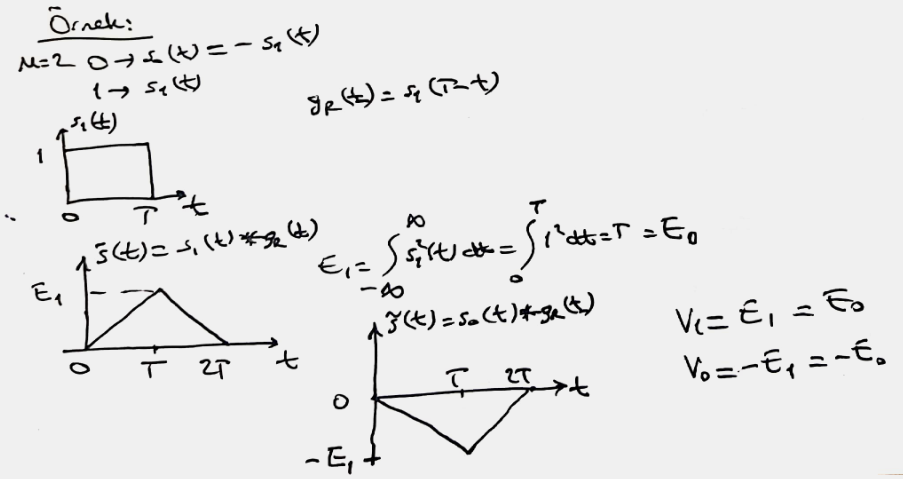 Örnek:
M=2 0→ s₀(t) = - s₁(t)
1→ s₁(t)
g_R(t) = s₁(T-t)
s₁(t)
1
0 T t
s̃(t) = s₁(t) * g_R(t)
E₁
0 T 2T t
E₁ = ∫_{-∞}^{∞} s₁²(t) dt = ∫_0^T 1² dt = T = E₀
s̃(t) = s₀(t) * g_R(t)
T 2T t
0
-E₁
V₁ = E₁ = E₀
V₀ = -E₁ = -E₀